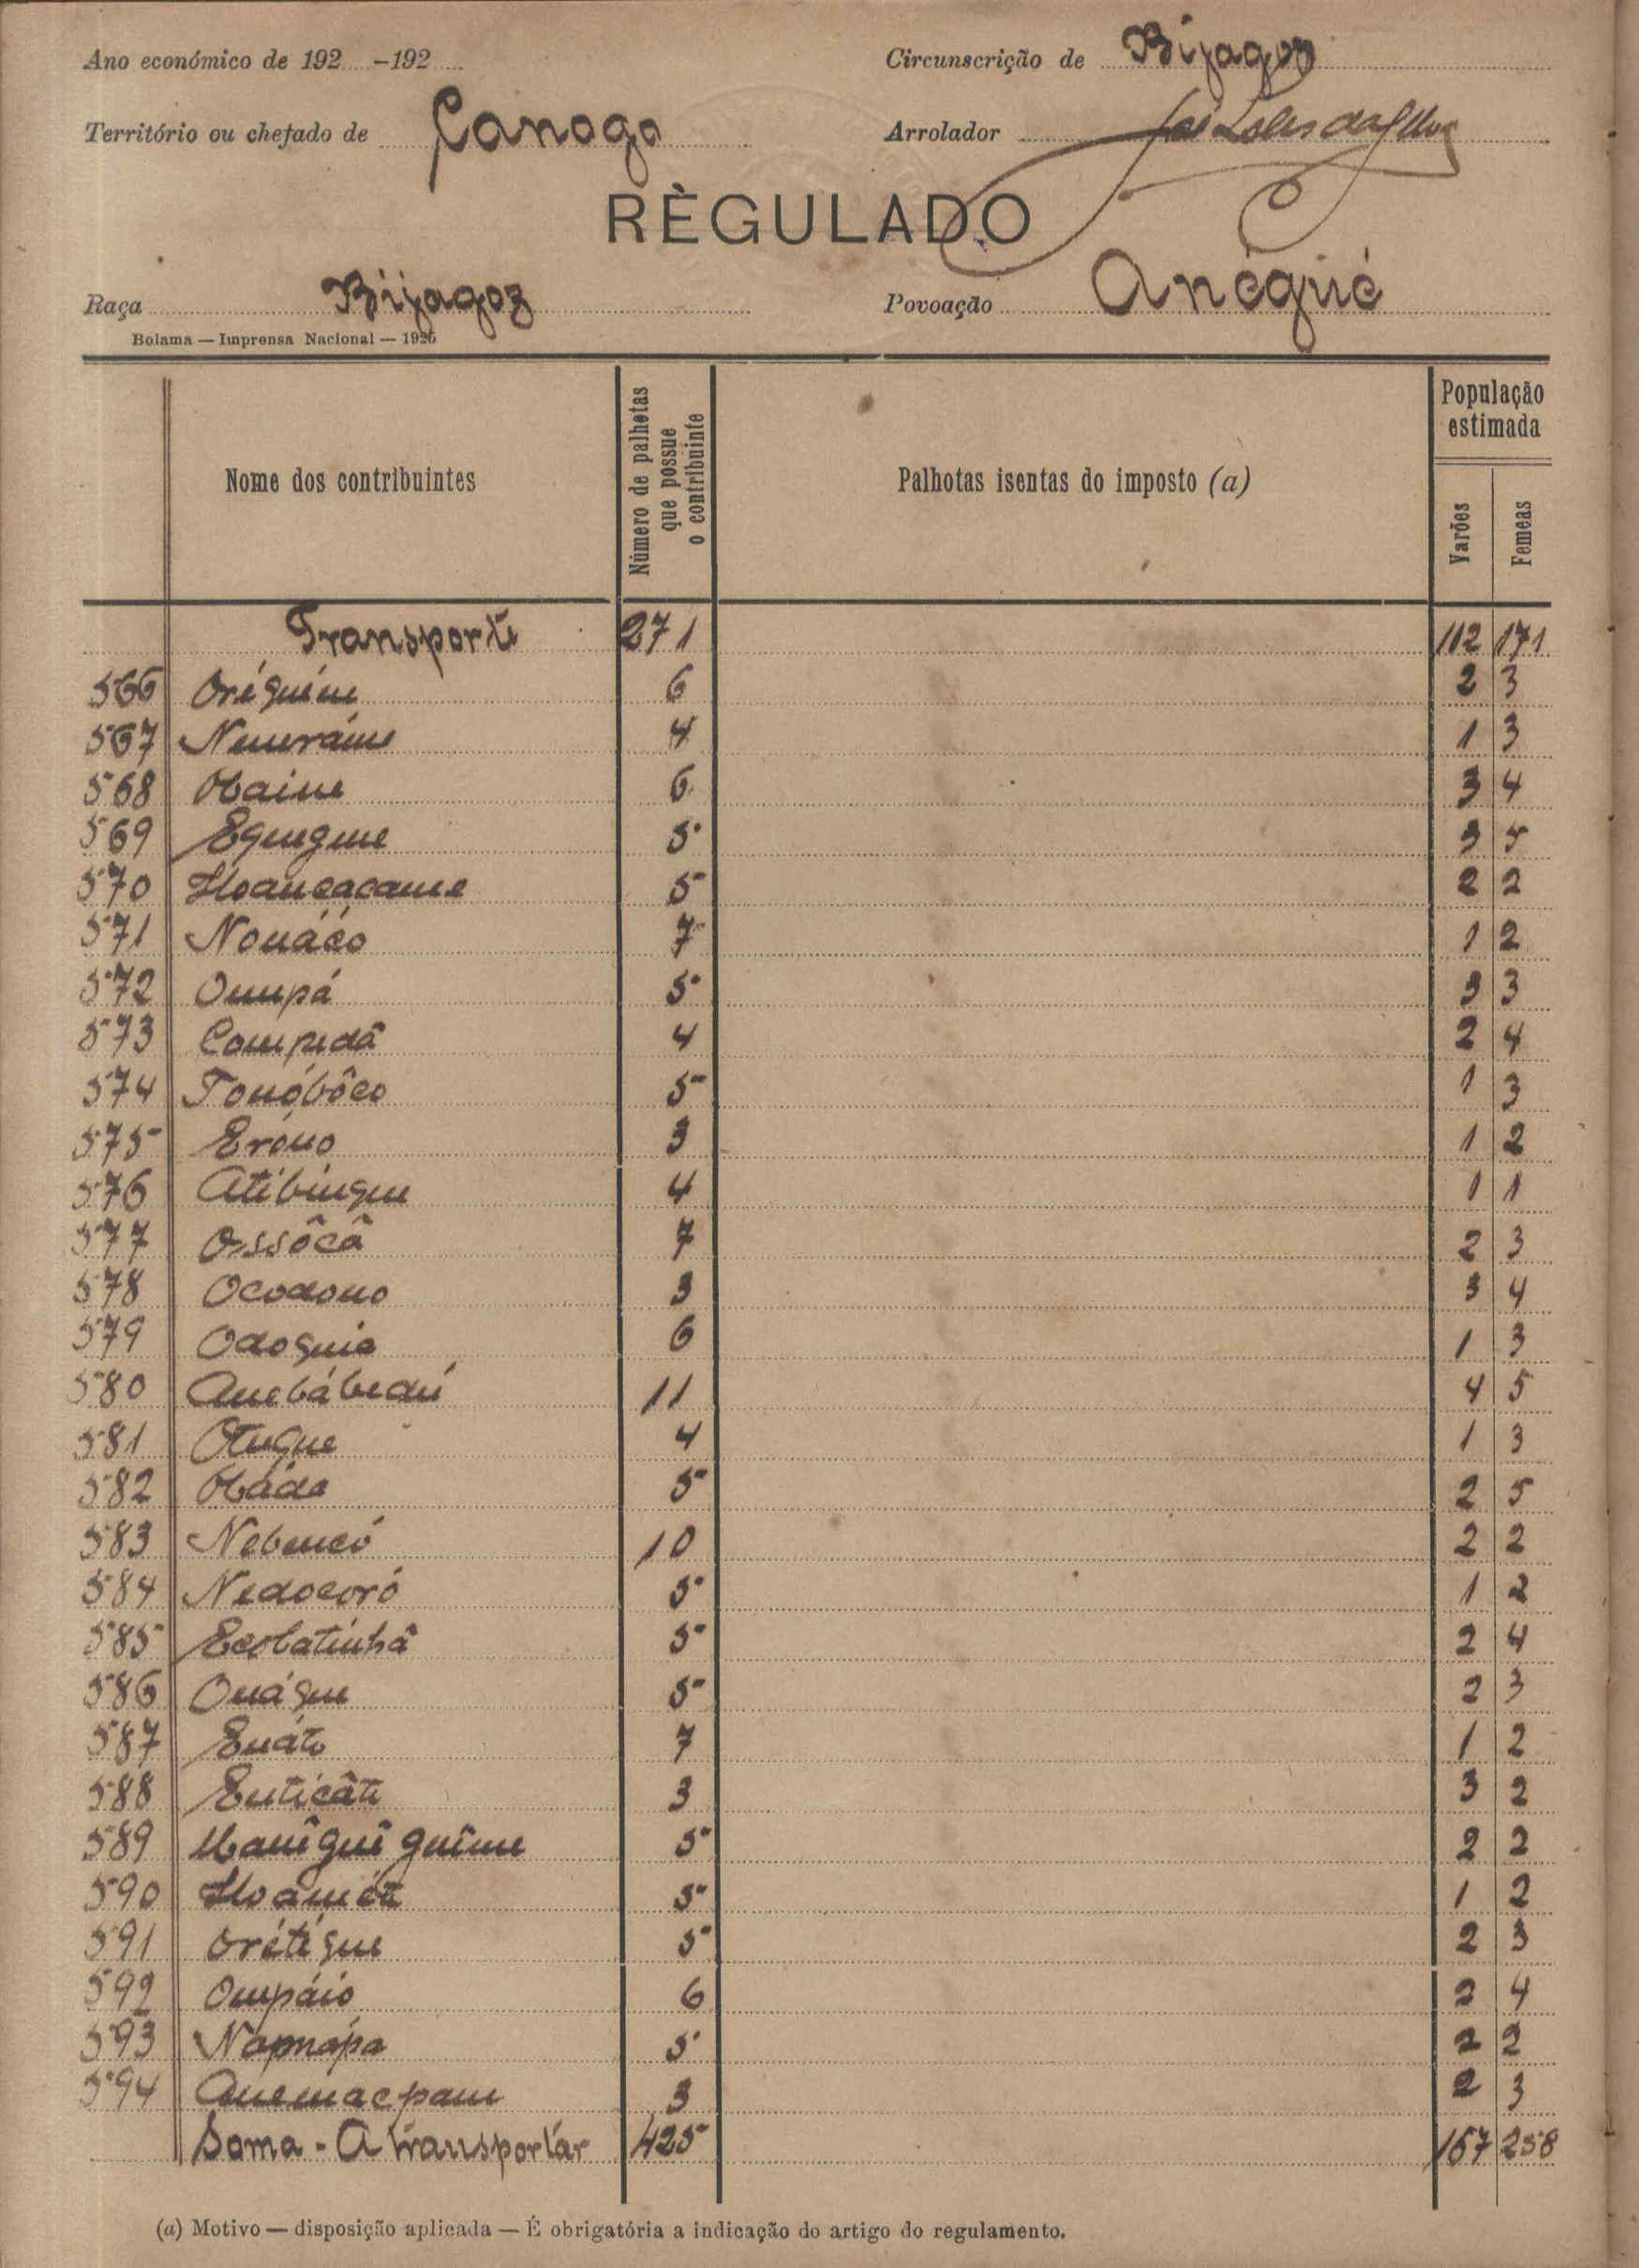 Ano económico de 192 -192 Circunscrição de Bijagoz
Território ou chefado de Canogo Arrolador
RÈGULADO
Raça Bijagoz Povoação Anégué
Bolama — Imprensa Nacional — 1926
Nome dos contribuintes Número de palhetas que possue o contribuinte Palhotas isentas do imposto (a) População estimada Varões Femeas
Transporte 271 112 171
566 Oréguéne 6 2 3
567 4 1 3
568 Obaine 6 3 4
569 5 3 5
570 5 2 2
571 7 1 2
572 Ompá 5 3 3
573 4 2 4
574 Tonóbôco 5 1 3
575 Eróno 3 1 2
576 Atibingue 4 1 1
577 Ossôcâ 7 2 3
578 Ocodono 3 3 4
579 Odoguia 6 1 3
580 11 4 5
581 Otugue 4 1 3
582 Obáda 5 2 5
583 10 2 2
584 Nedocoró 5 1 2
585 Ecobatinhâ 5 2 4
586 Onágue 5 2 3
587 Enáto 7 1 2
588 Enticâte 3 3 2
589 5 2 2
590 5 1 2
591 Orétégue 5 2 3
592 Ompáio 6 2 4
593 Napnápa 5 2 2
594 3 2 3
Soma - A transportar 425 167 258
(a) Motivo — disposição aplicada — É obrigatória a indicação do artigo do regulamento.